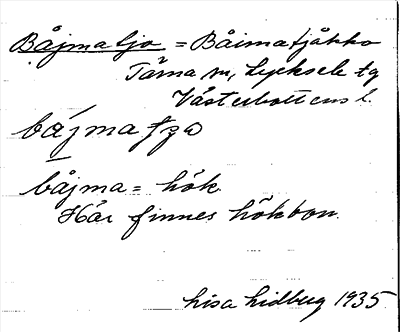 Båjmatjo = Båimatjåkko
Tärna sn, Lycksele tg
Västerbottens l.
bájma tzo
båjma = hök.
Här finnes hökbon.
Lisa Lidberg 1935